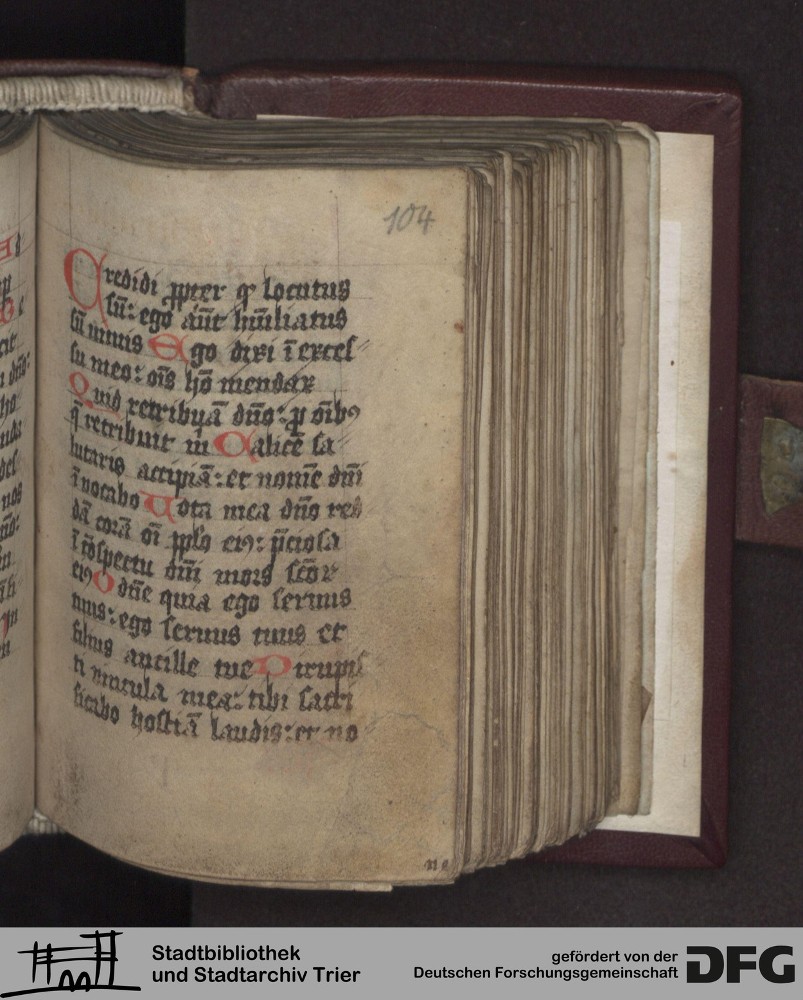 104
Credidi ꝓpter qͥ locutus
sū: ego aūt hūiliatus
sū nimis Ego dixi ī excel
su meo: oīs hō mendax
Quid retribuā dño: ꝓ oībꝰ
q̄ retribuit m̄ Calicē sa
lutaris accipiā: et nomē dñi
īuocabo Uota mea dño red
dā corā oī ppl̓o eiꝰ: p̄ciosa
ī ꝯspectu dñi mors scōꝝ
eiꝰ O dñe quia ego seruus
tuus: ego seruus tuus et
filius ancille tue Dirupis
ti vincula mea: tibi sacri
ficabo hostiā laudis: et no
Stadtbibliothek
und Stadtarchiv Trier
gefördert von der
Deutschen Forschungsgemeinschaft
DFG